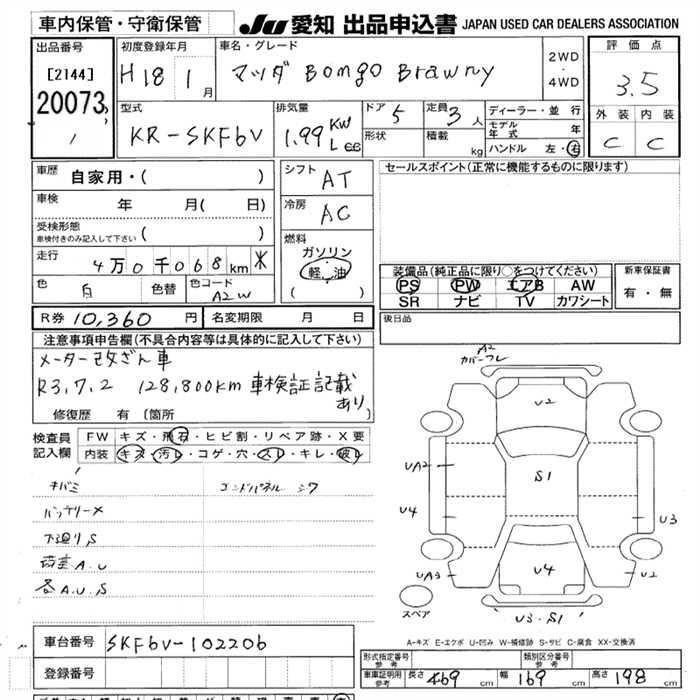 車内保管・守衛保管
JU愛知 出品申込書 JAPAN USED CAR DEALERS ASSOCIATION
出品番号
[2144]
20073
初度登録年月
H18 1 月
車名・グレード
マツダ Bongo Brawny
2WD
・
4WD
評価点
3.5
外装 内装
C C
型式
KR-SKF6V
排気量
1.99 KW
L cc
ドア 5
形状
定員 3 人
積載 kg
ディーラー・並行
モデル
年式 年
ハンドル 左・右
車歴
自家用・( )
車検 年 月( 日)
受検形態
車検付きのみ記入して下さい ( )
走行 4万0千068km *
色 白 色替 色コード A2W
シフト AT
冷房 AC
燃料
ガソリン
軽油
( )
セールスポイント(正常に機能するものに限ります)
装備品(純正品に限り○をつけてください)
PS PW エアB AW
SR ナビ TV カワシート
新車保証書
有・無
R券 10,360 円 名変期限 月 日
後日品
注意事項申告欄(不具合内容等は具体的に記入して下さい)
メーター改ざん車
R3.7.2 128,800km 車検証記載
あり
修復歴 有 〔箇所
検査員
記入欄
FW キズ・飛石・ヒビ割・リペア跡・X要
内装 キズ・汚レ・コゲ・穴・スレ・キレ・破レ
キバミ
バッテリーX
下廻りS
荷室A.U
各A.U.S
A2
カバーフレ
U2
UA2
S1
U4
U3
UA3
U4
U2
U3・S1
スペア
A-キズ E-エクボ U-凹み W-補修跡 S-サビ C-腐食 XX-交換済
車台番号 SKF6V-102206
登録番号
形式指定番号
参考
類別区分番号
参考
車庫証明用
参考
長さ 469 cm 幅 169 cm 高さ 198 cm